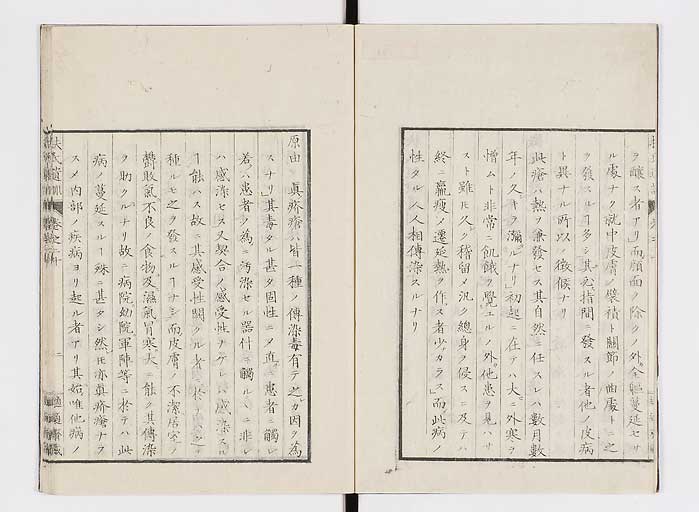 ヲ釀ス者アリ而顔面ヲ除クノ外全軀蔓延セサ
ル處ナク就中皮膚ノ襞積ト關節ノ曲處トニ之
ヲ發スルヿ多シ其指間ニ發スル者他ノ皮病
ト異ナル所以ノ徴候ナリ
此瘡ハ熱ヲ兼發セス其自然ニ任スレハ數月數
年ノ久キヲ瀰ルナリ初起ニ在テハ大ニ外寒ヲ
憎ムト非常ニ飢餓ヲ覺エルノ外他患ヲ見ハサ
スト雖𪜈久ク稽留メ汎ク總身ヲ侵スニ及テハ
終ニ羸瘦メ遷延熱ヲ作ス者少カラス而此病ノ
性タル人人相傳染スルナリ
原由 眞疥瘡ハ皆一種ノ傳染毒有テ之カ因ヲ為
スナリ其毒タル甚タ固性ニメ直ニ患者ニ觸レ
若ハ患者ノ為ニ汚染セル器什ニ觸ルヽニ非レ
ハ感染セス又契合ノ感受性ナケレハ感染スル
ヿ能ハス故ニ其感受性闕クル者ニ於テハ
種ルモ之ヲ發スルヿナシ而皮膚ノ不潔居室ノ
鬱敗氣不良ノ食物及濕氣冒寒大ニ能ク其傳染
ヲ助クルナリ故ニ病院幼院軍陣等ニ於テハ此
病ノ蔓延スルヿ殊ニ甚タシ然𪜈亦眞疥瘡ナラ
スメ内部ノ疾病ヨリ起ル者アリ其始唯他病ノ
二